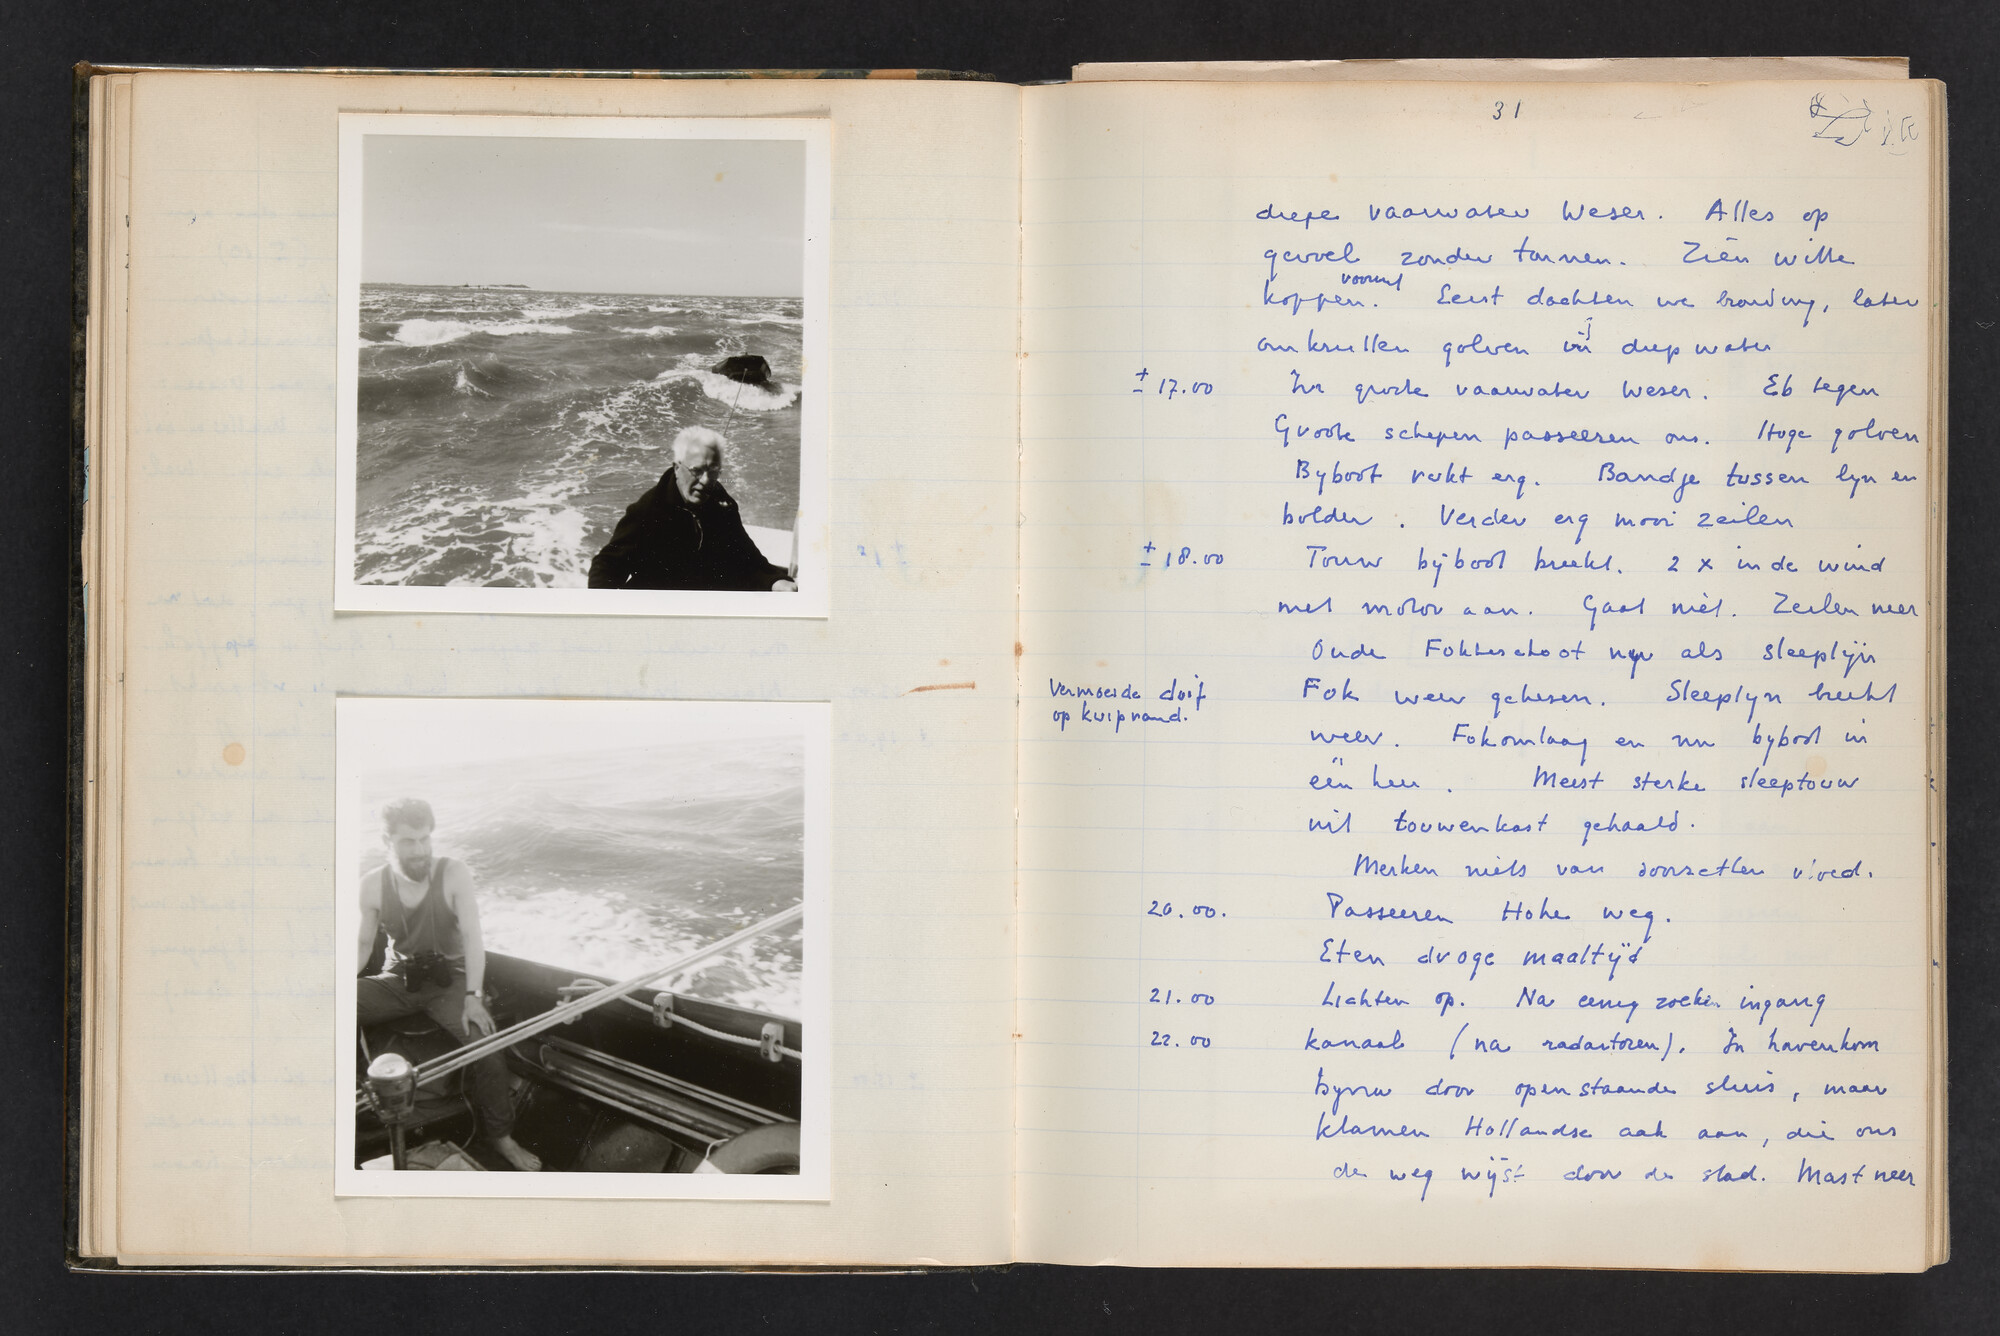 31
diepe vaarwater Weser. Alles op
gevoel zonder tonnen. Zien witte
vooruit
koppen. Eerst dachten we branding, later
omkrullen golven in diep water
± 17.00 In grote vaarwater Weser. Eb tegen
Groote schepen passeeren ons. Hoge golven
Byboot rukt erg. Bandje tussen lyn en
bolder. Verder erg mooi zeilen
± 18.00 Touw bijboot breekt. 2 x in de wind
met motor aan. Gaat niet. Zeilen neer
Oude Fokkeschoot nu als sleeplijn
Vermoeide duif
op kuiprand.
Fok weer gehesen. Sleeplyn breekt
weer. Fok omlaag en nu byboot in
één keer. Meest sterke sleeptouw
uit touwenkast gehaald.
Merken niets van doorzetten vloed.
20.00. Passeeren Hohe weg.
Eten droge maaltijd
21.00 Lichten op. Na eenig zoeken ingang
22.00 kanaal (na radartoren). In havenkom
door openstaande sluis, maar
klampen Hollandse aak aan, die ons
de weg wijst door de stad. Mast neer